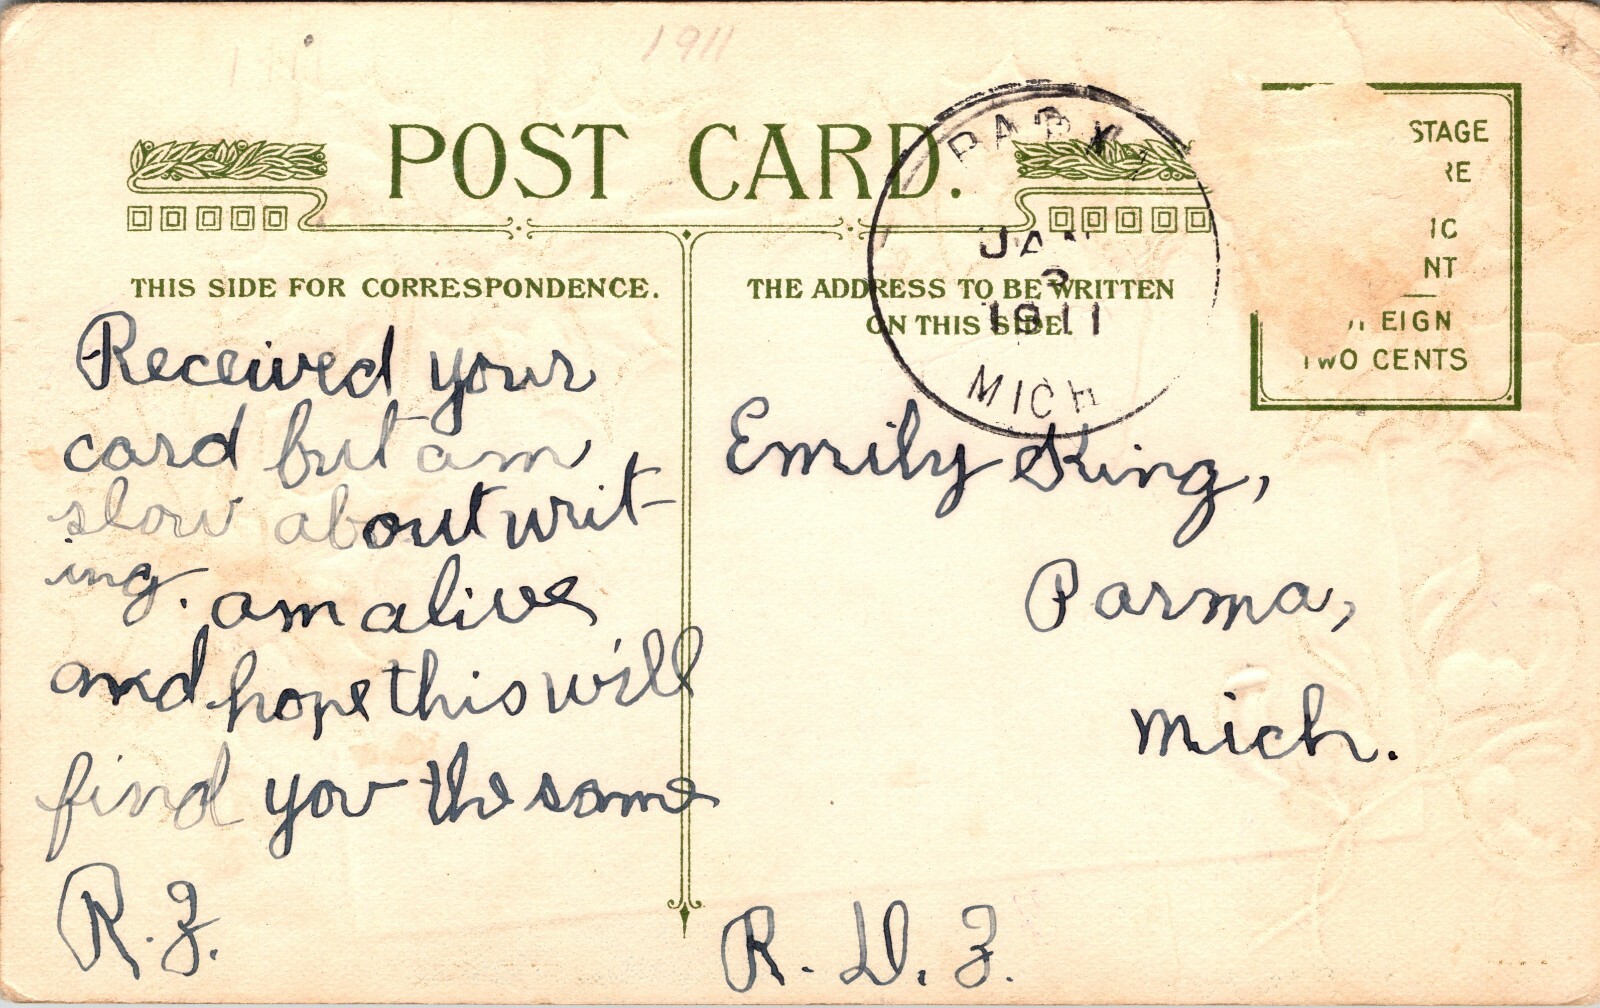 1911
POST CARD.
THIS SIDE FOR CORRESPONDENCE.
Received your
card but am
slow about writ-
ing. am alive
and hope this will
find you the same
R. F.
JAN
3
1911
MICH
THE ADDRESS TO BE WRITTEN
ON THIS SIDE.
STAGE
RE
IC
NT
EIGN
TWO CENTS
Emily King,
Parma,
Mich.
R. D. F.